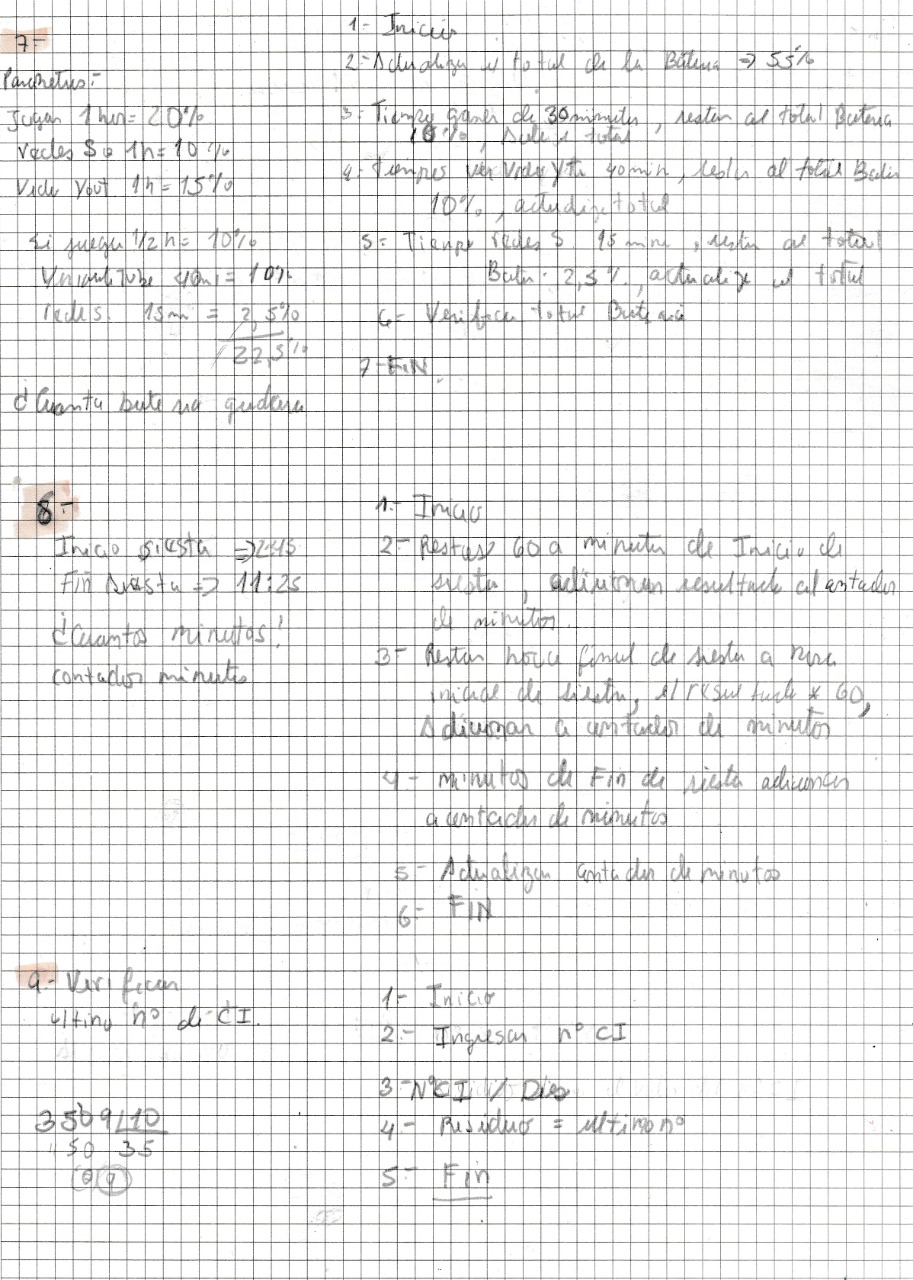 7-
Parametros:-
Jugar 1 hor = 20%
redes So 1h = 10%
Vide Yout 1h = 15%
Si juega 1/2 h = 10%
Tube 40m = 10%
redes. 15 mi = 2,5%
22,5%
¿Cuanta bateria quedara
1- Inicio
2- Actualizar el total de la Bateria => 55%
3- Tiempo gamer de 30 minutos, restar al total Bateria
10%, total
4- Tiempo ver Video Ytu 40 min, restar al total Bateri
10%, actualizar total
5= Tiempo redes S 15 min, restar al total
Bater. 2,5%, actualizar el total
6- Verificar total Bateria
7- FIN.
8-
Inicio siesta => 2:15
Fin siesta => 11:25
¿Cuantos minutos?
contador minutos
1.- Inicio
2- Restar 60 a minutos de Inicio de
siesta, adicionar resultado al contador
de minutos.
3- Restar hora final de siesta a hora
inicial de siesta, el resultado * 60,
Adicionar a contador de minutos
4- minutos de Fin de siesta adicionar
a contador de minutos
5- Actualizar contador de minutos
6- FIN
9- Verificar
ultimo nº de CI.
3509 /10
50 35
09
1- Inicio
2- Ingresar nº CI
3- NºCI / Dies
4- Residuo = ultimo nº
5- Fin